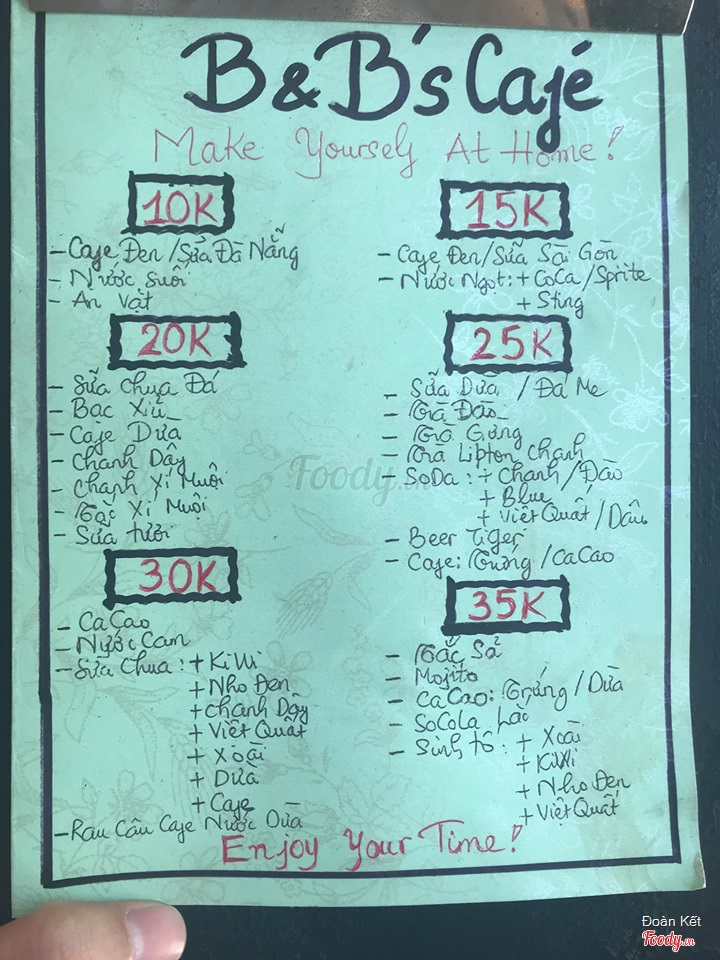 B&B's Café
Make Yourself At Home!
10K
- Cafe Đen/Sữa Đà Nẵng
- Nước Suối
- Ăn Vặt
15K
- Cafe Đen/Sữa Sài Gòn
- Nước Ngọt: + CoCa/Sprite
+ Sting
20K
- Sữa Chua Đá
- Bạc Xỉu
- Cafe Dừa
- Chanh Dây
- Chanh Xí Muội
- Tắc Xí Muội
- Sữa tươi
25K
- Sữa Dừa / Đá Me
- Trà Đào
- Trà Gừng
- Trà Lipton Chanh
- SoDa : + Chanh/Đào
+ Blue
+ Việt Quất/Dâu
- Beer Tiger
- Cafe: Trứng/CaCao
30K
- CaCao
- Nước Cam
- Sữa Chua : + KiWi
+ Nho Đen
+ Chanh Dây
+ Việt Quất
+ Xoài
+ Dừa
+ Cafe
- Rau Câu Cafe Nước Dừa
35K
- Tắc Sả
- Mojito
- CaCao: Trứng/Dừa
- SoCoLa Lắc
- Sinh tố : + Xoài
+ KiWi
+ Nho Đen
+ Việt Quất
Enjoy Your Time!
Foody.vn
Đoàn Kết
Foody.vn